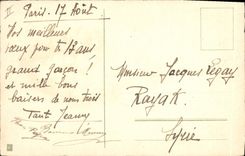 Paris. 17 Août
Nos meilleurs
vœux pour tes 12 ans
grand garçon !
et mille bons
baisers de nous trois
Tant Jeanne
Monsieur Jacques Legay
Rayak
Syrie